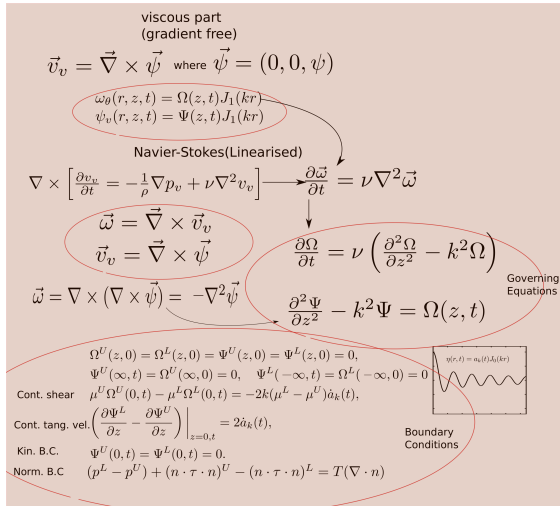 viscous part
(gradient free)
$\vec{v}_v = \vec{\nabla} \times \vec{\psi}$ where $\vec{\psi} = (0, 0, \psi)$
$\omega_\theta(r, z, t) = \Omega(z, t) J_1(kr)$
$\psi_v(r, z, t) = \Psi(z, t) J_1(kr)$
Navier-Stokes(Linearised)
$\nabla \times \left[ \frac{\partial v_v}{\partial t} = -\frac{1}{\rho} \nabla p_v + \nu \nabla^2 v_v \right]$ $\frac{\partial \vec{\omega}}{\partial t} = \nu \nabla^2 \vec{\omega}$
$\vec{\omega} = \vec{\nabla} \times \vec{v}_v$
$\vec{v}_v = \vec{\nabla} \times \vec{\psi}$
$\frac{\partial \Omega}{\partial t} = \nu \left( \frac{\partial^2 \Omega}{\partial z^2} - k^2 \Omega \right)$
Governing
Equations
$\vec{\omega} = \nabla \times (\nabla \times \vec{\psi}) = -\nabla^2 \vec{\psi}$ $\frac{\partial^2 \Psi}{\partial z^2} - k^2 \Psi = \Omega(z, t)$
$\Omega^U(z, 0) = \Omega^L(z, 0) = \Psi^U(z, 0) = \Psi^L(z, 0) = 0,$
$\Psi^U(\infty, t) = \Omega^U(\infty, 0) = 0, \quad \Psi^L(-\infty, t) = \Omega^L(-\infty, 0) = 0$
Cont. shear $\mu^U \Omega^U(0, t) - \mu^L \Omega^L(0, t) = -2k(\mu^L - \mu^U) \dot{a}_k(t),$
Cont. tang. vel. $\left( \frac{\partial \Psi^L}{\partial z} - \frac{\partial \Psi^U}{\partial z} \right) \Big|_{z=0,t} = 2\dot{a}_k(t),$
Kin. B.C. $\Psi^U(0, t) = \Psi^L(0, t) = 0.$
Norm. B.C $(p^L - p^U) + (n \cdot \tau \cdot n)^U - (n \cdot \tau \cdot n)^L = T(\nabla \cdot n)$
$\eta(r, t) = a_k(t) J_0(kr)$
Boundary
Conditions